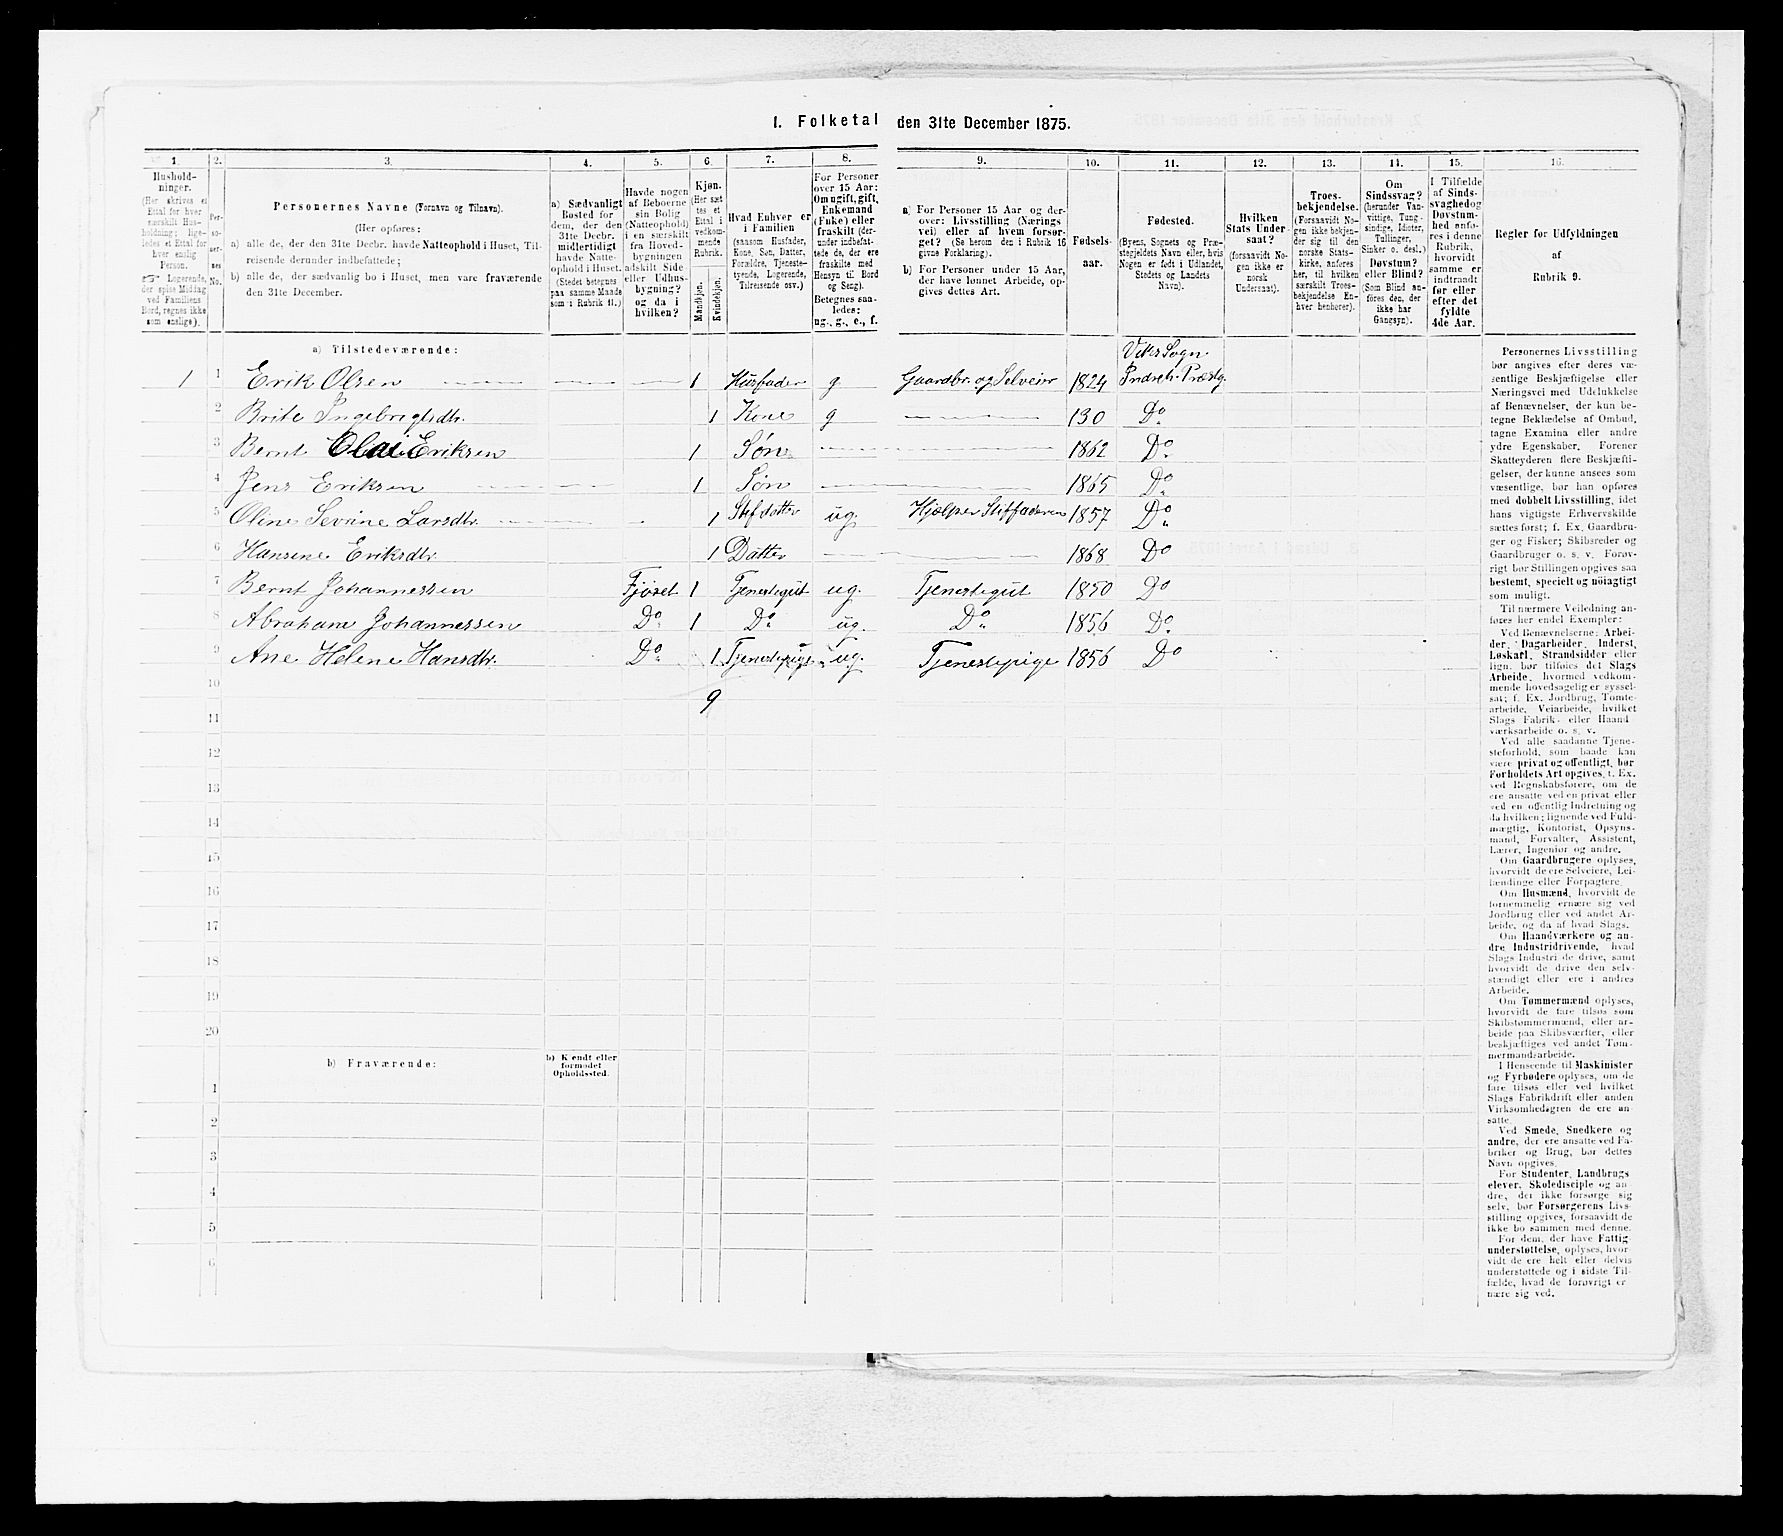 1. Folketal den 31te December 1875.
1. 2. 3. 4. 5. 6. 7. 8. 9. 10. 11. 12. 13. 14. 15. 16.
Hushold-
ninger.
(Her skrives et
Ettal for hver
særskilt Hus-
holdning; lige-
ledes et Ettal for
hver enslig
Person.
Logerende,
der spise Middag
ved Familiens
Bord, regnes ikke
som enslige).
Per-
so-
ner-
nes
No.
Personernes Navne (Fornavn og Tilnavn).
(Her opføres:
a) alle de, der den 31te Decbr. havde Natteophold i Huset, Til-
reisende derunder indbefattede;
b) alle de, der sædvanlig bo i Huset, men vare fraværende
den 31te December.
a) Sædvanligt
Bosted for
dem, der den
31te Decbr.
midlertidigt
havde Natte-
ophold i Huset.
(Stedet betegnes
paa samme Maade
som i Rubrik 11.)
Havde nogen
af Beboerne
sin Bolig
(Natteophold)
i en særskilt
fra Hoved-
bygningen
adskilt Side-
eller Udhus-
bygning?
og da i
hvilken?
Kjøn.
(Her sæt-
tes et
Ettal i
vedkom-
mende
Rubrik.
Mandkjøn.
Kvindekjøn.
Hvad Enhver er
i Familien
(saasom Husfader,
Kone, Søn, Datter,
Forældre, Tjeneste-
tyende, Logerende,
Tilreisende osv.)
For Personer
over 15 Aar:
Om ugift, gift,
Enkemand
(Enke) eller
fraskilt (der-
under indbefat-
tede de, der ere
fraskilte med
Hensyn til Bord
og Seng).
Betegnes saa-
ledes:
ug., g., e., f.
a) For Personer 15 Aar og der-
over: Livsstilling (Nærings-
vei) eller af hvem forsør-
get? (Se herom den i Rubrik 16
givne Forklaring).
b) For Personer under 15 Aar,
der have lønnet Arbeide, op-
gives dettes Art.
Fødsels-
aar.
Fødested.
(Byens, Sognets og Præ-
stegjeldets Navn eller, hvis
Nogen er født i Udlandet,
Stedets og Landets
Navn).
Hvilken
Stats Under-
saat?
(forsaavidt No-
gen ikke er
norsk
Undersaat).
Troes-
bekjendelse.
(Forsaavidt No-
gen ikke bekjen-
der sig til den
norske Stats-
kirke, anføres
her, til hvilken
særskilt Troes-
bekjendelse En-
hver henhører).
Om
Sindssvag?
(herunder Van-
vittige, Tung-
sindige, Idioter,
Tullinger,
Sinker o. desl.)
Døvstum?
eller Blind?
(Som Blind an-
føres den, der
ikke har
Gangsyn).
I Tilfælde
af Sinds-
svaghed og
Døvstum-
hed anfø-
res i denne
Rubrik,
hvorvidt
samme er
indtraadt
før eller
efter det
fyldte
4de Aar.
Regler for Udfyldningen
af
Rubrik 9.
a) Tilstedeværende:
Viks Sogn
1 1 Erik Olsen 1 Husfader g Gaardbr. og Selveier 1824 Indreh. Præstg.
2 Brite Ingebrigtsdtr. 1 Kone g 130 Do
3 Bernt Olai Eriksen 1 Søn 1862 Do
4 Jens Eriksen 1 Søn 1865 Do
5 Oline Sevrine Larsdtr. 1 Stefdatter ug. Hjælper Stiffaderen 1857 Do
6 Hansine Eriksdtr. 1 Datter 1868 Do
7 Bernt Johannessen Fjøset 1 Tjenestegut ug. Tjenestegut 1850 Do
8 Abraham Johannessen Do 1 Do ug. Do 1856 Do
9 Ane Helene Hansdtr. Do 1 Tjenestepige ug. Tjenestepige 1856 Do
10
9
11
12
13
14
15
16
17
18
19
20
b) Fraværende:
b) Kjendt eller
formodet
Opholdssted.
1
2
3
4
5
6
Personernes Livsstilling
bør angives efter deres væ-
sentlige Beskjæftigelse eller
Næringsvei med Udelukkelse
af Benævnelser, der kun be-
tegne Beklædelse af Ombud,
tagne Examina eller andre
ydre Egenskaber. Forener
Skatteyderen flere Beskjæfti-
gelser, der kunne ansees som
væsentlige, bør han opføres
med dobbelt Livsstilling, idet
hans vigtigste Erhvervskilde
sættes først; f. Ex. Gaardbru-
ger og Fisker; Skibsreder og
Gaardbruger o. s. v. Forøv-
rigt bør Stillingen opgives saa
bestemt, specielt og nøiagtigt
som muligt.
Til nærmere Veiledning an-
føres her endel Exempler:
Ved Benævnelserne: Arbei-
der, Dagarbeider, Inderst,
Løskarl, Strandsidder eller
lign. bør tilføies det Slags
Arbeide, hvormed vedkom-
mende hovedsagelig er syssel-
sat; f. Ex. Jordbrug, Tomte-
arbeide, Veiarbeide, hvilket
Slags Fabrik- eller Haand-
værksarbeide o. s. v.
Ved alle saadanne Tjene-
steforhold, som baade kan
være privat og offentligt, bør
Forholdets Art opgives, t. Ex.
ved Regnskabsførere, om de
ere ansatte ved en privat eller
ved en offentlig Indretning og
da hvilken; lignende ved Fuld-
mægtig, Kontorist, Opsyns-
mand, Forvalter, Assistent,
Lærer, Ingeniør og andre.
Om Gaardbrugere oplyses,
hvorvidt de ere Selveiere, Lei-
lændinge eller Forpagtere.
Om Husmænd, hvorvidt de
fornemmelig ernære sig ved
Jordbrug eller ved andet Ar-
beide, og da af hvad Slags.
Om Haandværkere og an-
dre Industridrivende, hvad
Slags Industri de drive, samt
hvorvidt de drive den selv-
stændigt eller ere i andres
Arbeide.
Om Tømmermænd oplyses,
hvorvidt de fare tilsøs som
Skibstømmermænd, eller ar-
beide paa Skibsværfter, eller
beskjæftiges ved andet Tøm-
mermandsarbeide.
I Henseende til Maskinister
og Fyrbødere oplyses, om de
fare tilsøs eller ved hvilket
Slags Fabrikdrift eller anden
Virksomhedsgren de ere an-
satte.
Ved Smede, Snedkere og
andre, der ere ansatte ved Fa-
briker og Brug, bør dettes
Navn opgives.
For Studenter, Landbrugs-
elever, Skoledisciple og an-
dre, der ikke forsørge sig
selv, bør Forsørgerens Livs-
stilling opgives, forsaavidt de
ikke bo sammen med denne.
For dem, der have Fattig-
understøttelse, oplyses, hvor-
vidt de ere helt eller delvis
understøttede og i sidste Til-
fælde, hvad de forøvrigt er-
nære sig ved.